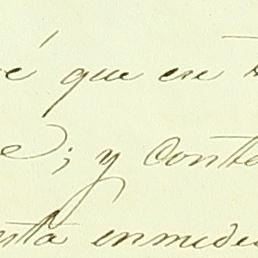 é que en
e; y conte
esta enmedi